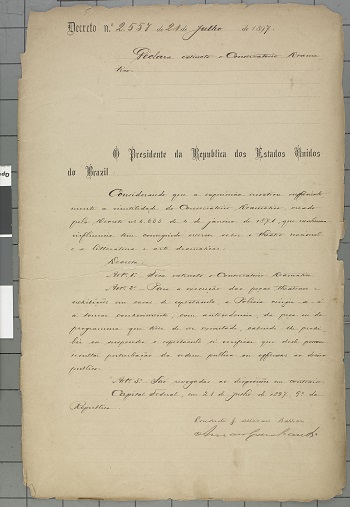 Decreto n.º 2557 de 21 de Julho de 1897.
Declara extincto o Conservatorio Drama-
tico.
O Presidente da Republica dos Estados Unidos
do Brazil
Considerando que a experiencia mostrou sufficiente-
mente a inutilidade do Conservatorio Dramatico, creado
pelo Decreto n.º 4.666 de 4 de janeiro de 1871, que nenhuma
influencia tem conseguido exercer sobre o theatro nacional
e a litteratura e arte dramatica:
Decreta:
Art. 1º. Fica extincto o Conservatorio Dramatico.
Art. 2º. Para a execução das peças theatraes e
exhibições em casas de espectaculo, a Policia
a tomar conhecimento, com antecedencia, da peça ou do
programma que tem de ser
o espectaculo si verificar que
perturbação da ordem publica ou offensas ao decoro
publico.
Art. 3º. São revogadas as disposições em contrario.
Capital Federal, em 21 de julho de 1897, 9º da
Republica.